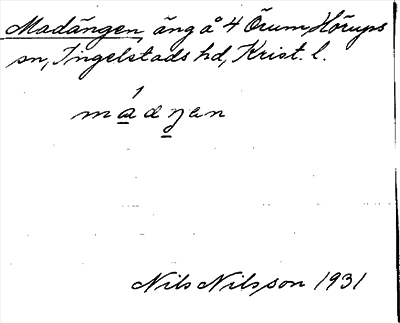 Madängen, äng å 4 Örum, Hörups
sn, Ingelstads hd, Krist. l.
mádŋen
Nils Nilsson 1931